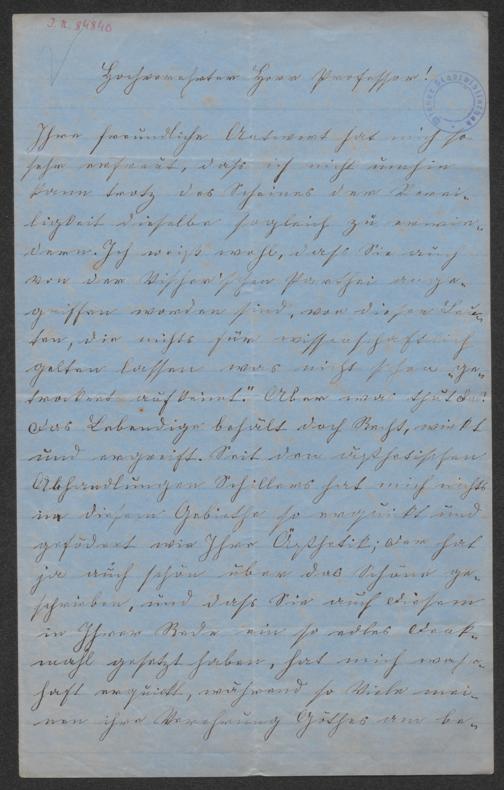 J. N. 84840
Hochverehrter Herr Professor!
Ihre freundliche Antwort hat mich so
sehr erfreut, daß ich nicht umhin
kann trotz des Scheines der Vorei-
ligkeit dieselbe sogleich zu erwie-
dern. Ich weiß wohl, daß Sie auch
von der Vischer'schen Parthei ange-
griffen worden sind, von dieser Leu-
ten, die nichts für wissenschaftlich
gelten lassen was nicht schon „ge-
trocknet aufkeimt." Aber was thut das?
das Lebendige behält doch Recht, wirkt
und ergreift. Seit den ästhetischen
Abhandlungen Schillers hat mich nichts
in diesem Gebiethe so erquikt und
gefödert wie Ihre Ästhetik; der hat
ja auch schön über das Schöne ge-
schrieben, und daß Sie auch diesem
in Ihrer Rede ein so edles Denk-
mahl gesetzt haben, hat mich wahr-
haft erquickt, während so Viele mei-
nen ihre Verehrung Göthes am be-